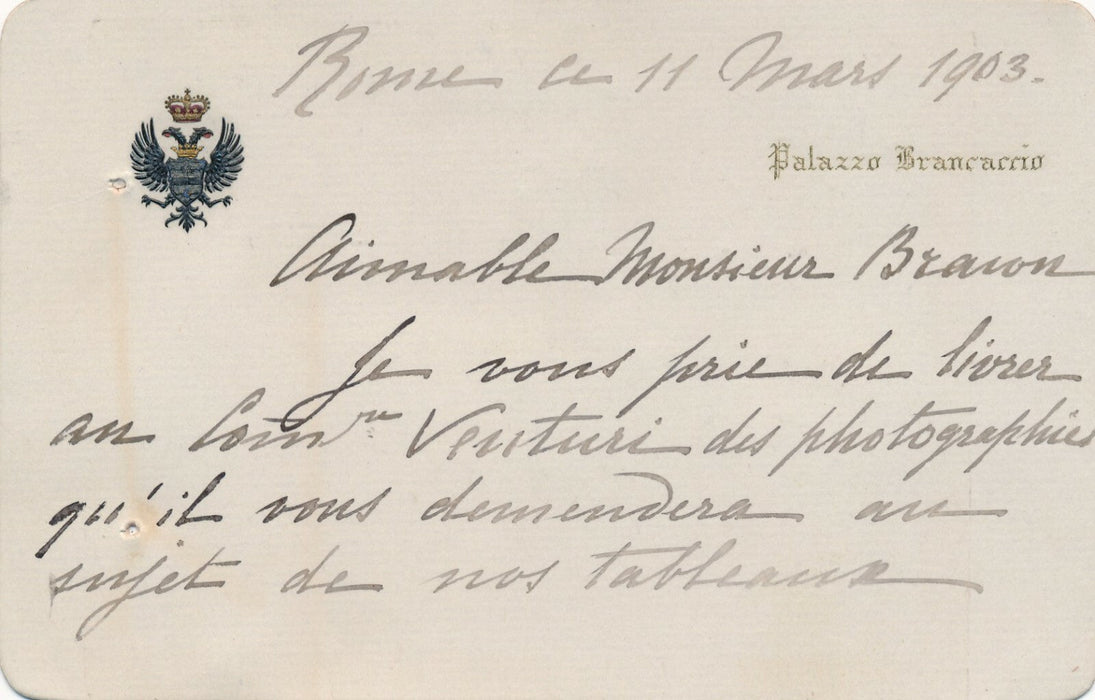 Rome ce 11 Mars 1903.
Palazzo Brancaccio
Aimable Monsieur Braun
Je vous prie de livrer
au Comm Venturi des photographies
qu'il vous demendera au
sujet de nos tableaux